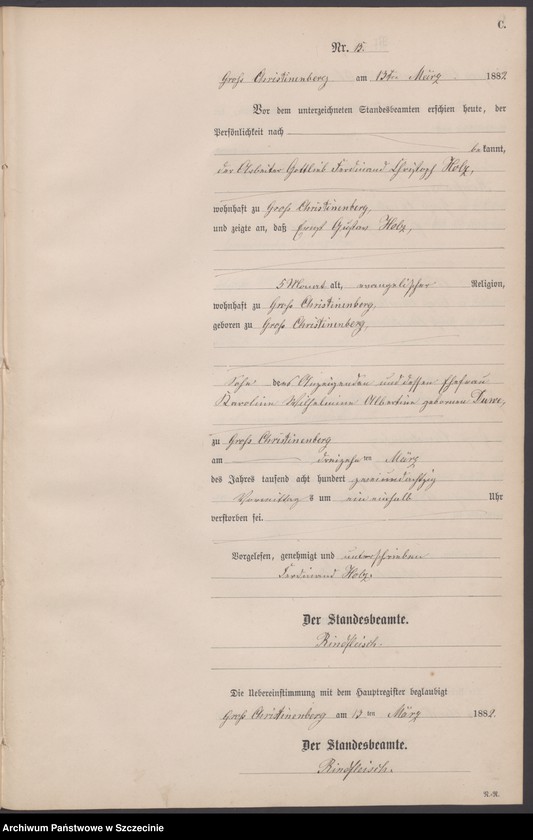 C.
Nr. 15.
Groß Christinenberg am 13ten März 1882
Vor dem unterzeichneten Standesbeamten erschien heute, der
Persönlichkeit nach
bekannt,
der Arbeiter Gottlieb Ferdinand Christoph Holz,
wohnhaft zu Groß Christinenberg,
und zeigte an, daß Ernst Gustav Holz,
5 Monat alt, evangelischer Religion,
wohnhaft zu Groß Christinenberg,
geboren zu Groß Christinenberg,
Sohn des Anzeigenden und dessen Ehefrau
Karoline Wilhelmine Albertine geborenen
zu Groß Christinenberg
am dreizehnten März
des Jahres tausend acht hundert zweiundachtzig
Vormittags um ein einhalb Uhr
verstorben sei.
Vorgelesen, genehmigt und unterschrieben
Ferdinand Holz
Der Standesbeamte.
Rindfleisch.
Die Uebereinstimmung mit dem Hauptregister beglaubigt
Groß Christinenberg am 13ten März 1882.
Der Standesbeamte.
Rindfleisch.
N.-R.
Archiwum Państwowe w Szczecinie